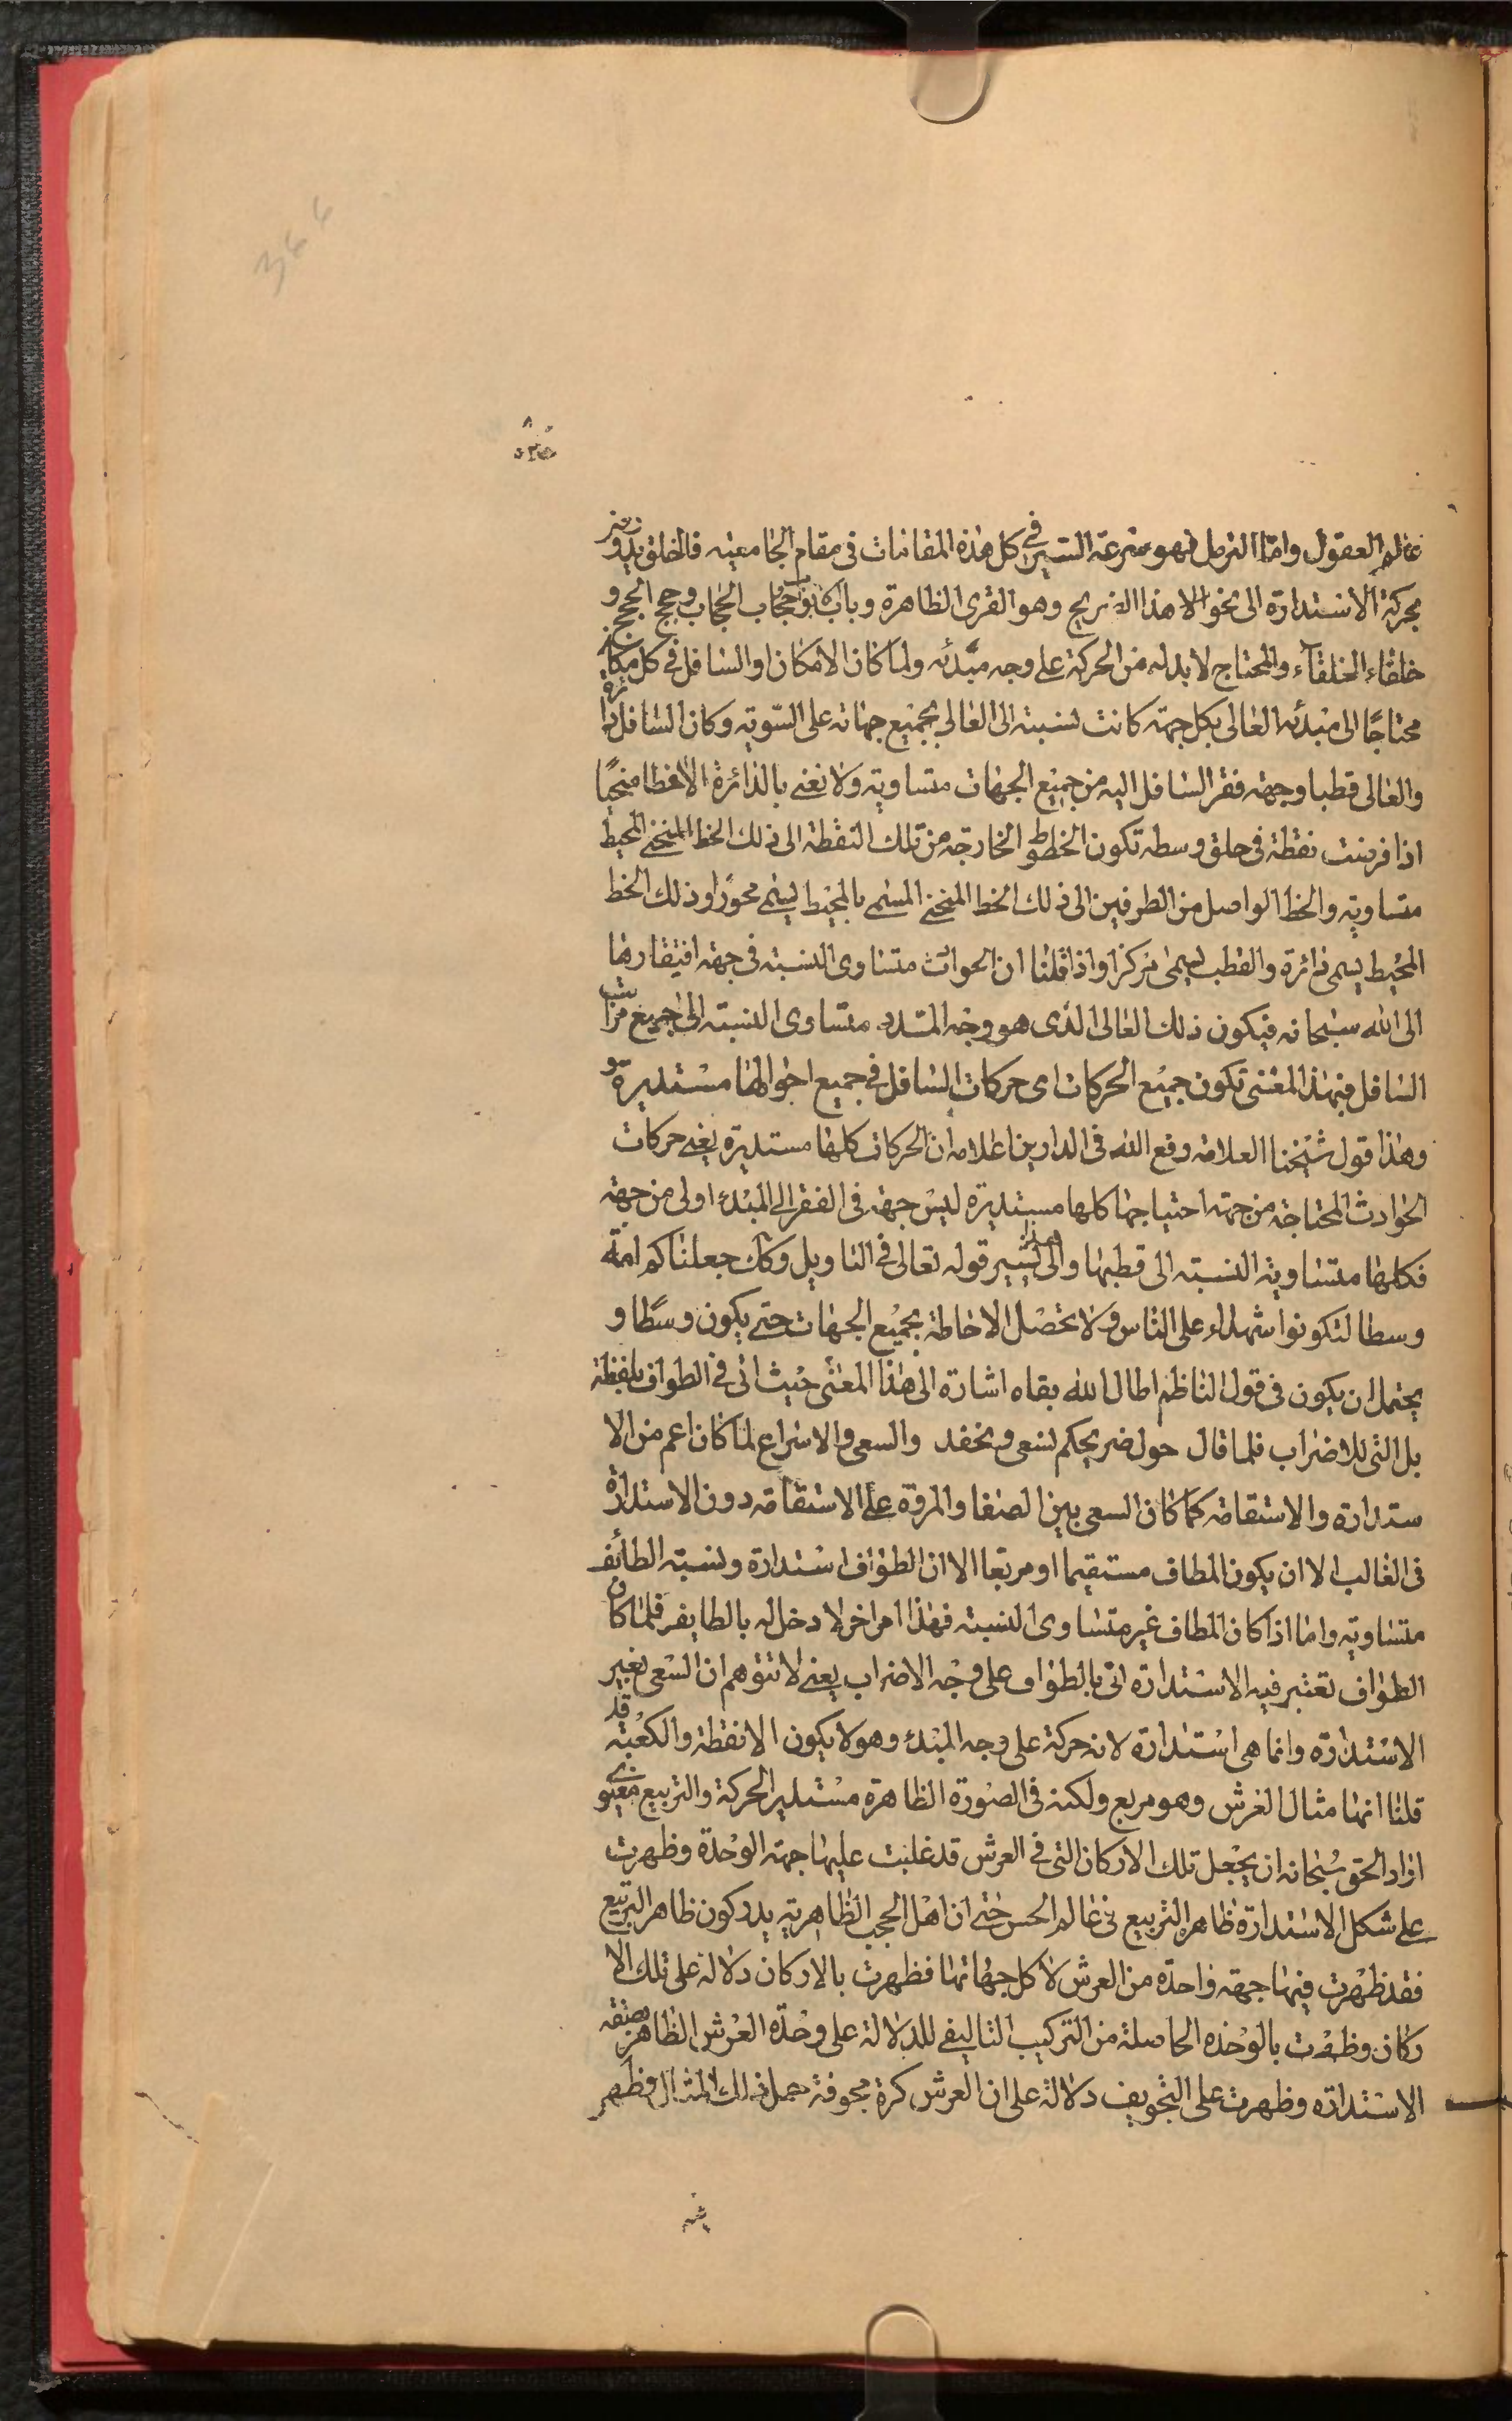 عالم العقول وامّا الترمل فهو سرعة السير في كل هذه المقامات في مقام الجامعيه فالخلق يدور
بحركة الاستدارة الى نحو هذا الضريح وهو القرى الظاهرة وباب حجاب الحجاب وحجج الحجج و
خلفاء الخلفاء والمحتاج لا بد له من الحركة على وجه مبدئه ولما كان الامكان او السافل في كل مكان
محتاجًا الى مبدئه العالى بكل جهته كانت نسبته الى العالي بجميع جهاته على السّويه وكان السافل دائرة
والعالى قطبا وجهة فقر السافل اليه من جميع الجهات متساوية ولا نعني بالدائرة الا خطا منحنيًا
اذا فرضت نقطة في حلق وسطه تكون الخطوط الخارجه من تلك النقطة الى ذلك الخط المنحني المحيط
متساوية والخط الواصل من الطرفين الى ذلك الخط المنحني المسمى بالمحيط يسمى محورًا وذلك الخط
المحيط يسمى دائرة والقطب يسمى مركزا واذا قلنا ان الحوادث متساوى النسبة في جهة افتقارها
الى الله سبحانه فيكون ذلك العالى الذى هو وجه المبدء متساوى النسبته الى جميع مراتب
السافل فبهذا المعنى تكون جميع الحركات اى حركات السافل في جميع احوالها مستديرة
وهذا قول شيخنا العلامة رفع الله في الدارين اعلامه ان الحركات كلها مستديرة يعني حركات
الحوادث المحتاجة من جهة احتياجها كلها مستديرة ليس جهة في الفقر الى المبدء اولى من جهة
فكلها متساوية النسبته الى قطبها والى هذا يشير قوله تعالى في التاويل وكذلك جعلناكم امة
وسطا لتكونوا شهداء على الناس ولا تحصل الاحاطة بجميع الجهات حتى يكون وسطًا و
يحتمل ان يكون في قول الناظم اطال الله بقاه اشارة الى هذا المعنى حيث اتى في الطواف بلفظة
بل التى للاضراب فلما قال حول ضريحكم نسعى ونحفد والسعى والاسراع لما كان اعم من الا
ستدارة والاستقامة كما كان السعى بين الصفا والمروة على الاستقامة دون الاستدارة
في الغالب الا ان يكون المطاف مستقيما او مربعا الا ان الطواف استدارة ونسبته الطائف
متساوية واما اذا كان المطاف غير متساوى النسبته فهذا امر اخر لا دخل له بالطايف فلما كان
الطواف تعتبر فيه الاستدارة اتى بالطواف على وجه الاضراب يعني لا تتوهم ان السعى بغير
الاستدارة وانما هى استدارة لانه حركة على وجه المبدء وهو لا يكون الا نقطة والكعبة قد
قلنا انها مثال العرش وهو مربع ولكنه في الصورة الظاهرة مستدير الحركة والتربيع معنوي
اراد الحق سبحانه ان يجعل تلك الاركان التى في العرش قد غلبت عليها جهة الوحدة وظهرت
على شكل الاستدارة ظاهر التربيع في عالم الحس حتى ان اهل الحجب الظاهرية يدركون ظاهر التربيع
فقد ظهرت فيها جهة واحدة من العرش لا كل جهاتها فظهرت بالاركان دلالة على تلك الا
ركان وظهرت بالوحده الحاصلة من التركيب التاليفى للدلالة على وحدة العرش الظاهر بصفة
الاستدارة وظهرت على التجويف دلالة على ان العرش كرة مجوفة حمل ذلك المثال وظهر